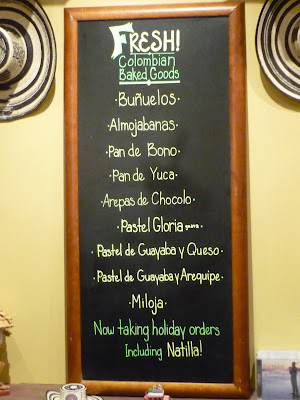 FRESH!
Colombian
Baked Goods
·Buñuelos·
Almojabanas·
·Pan de Bono·
·Pan de Yuca·
·Arepas de Chocolo·
·Pastel Gloria·
·Pastel de Guayaba y Queso·
·Pastel de Guayaba y Arequipe·
·Miloja·
Now taking holiday orders
Including Natilla!